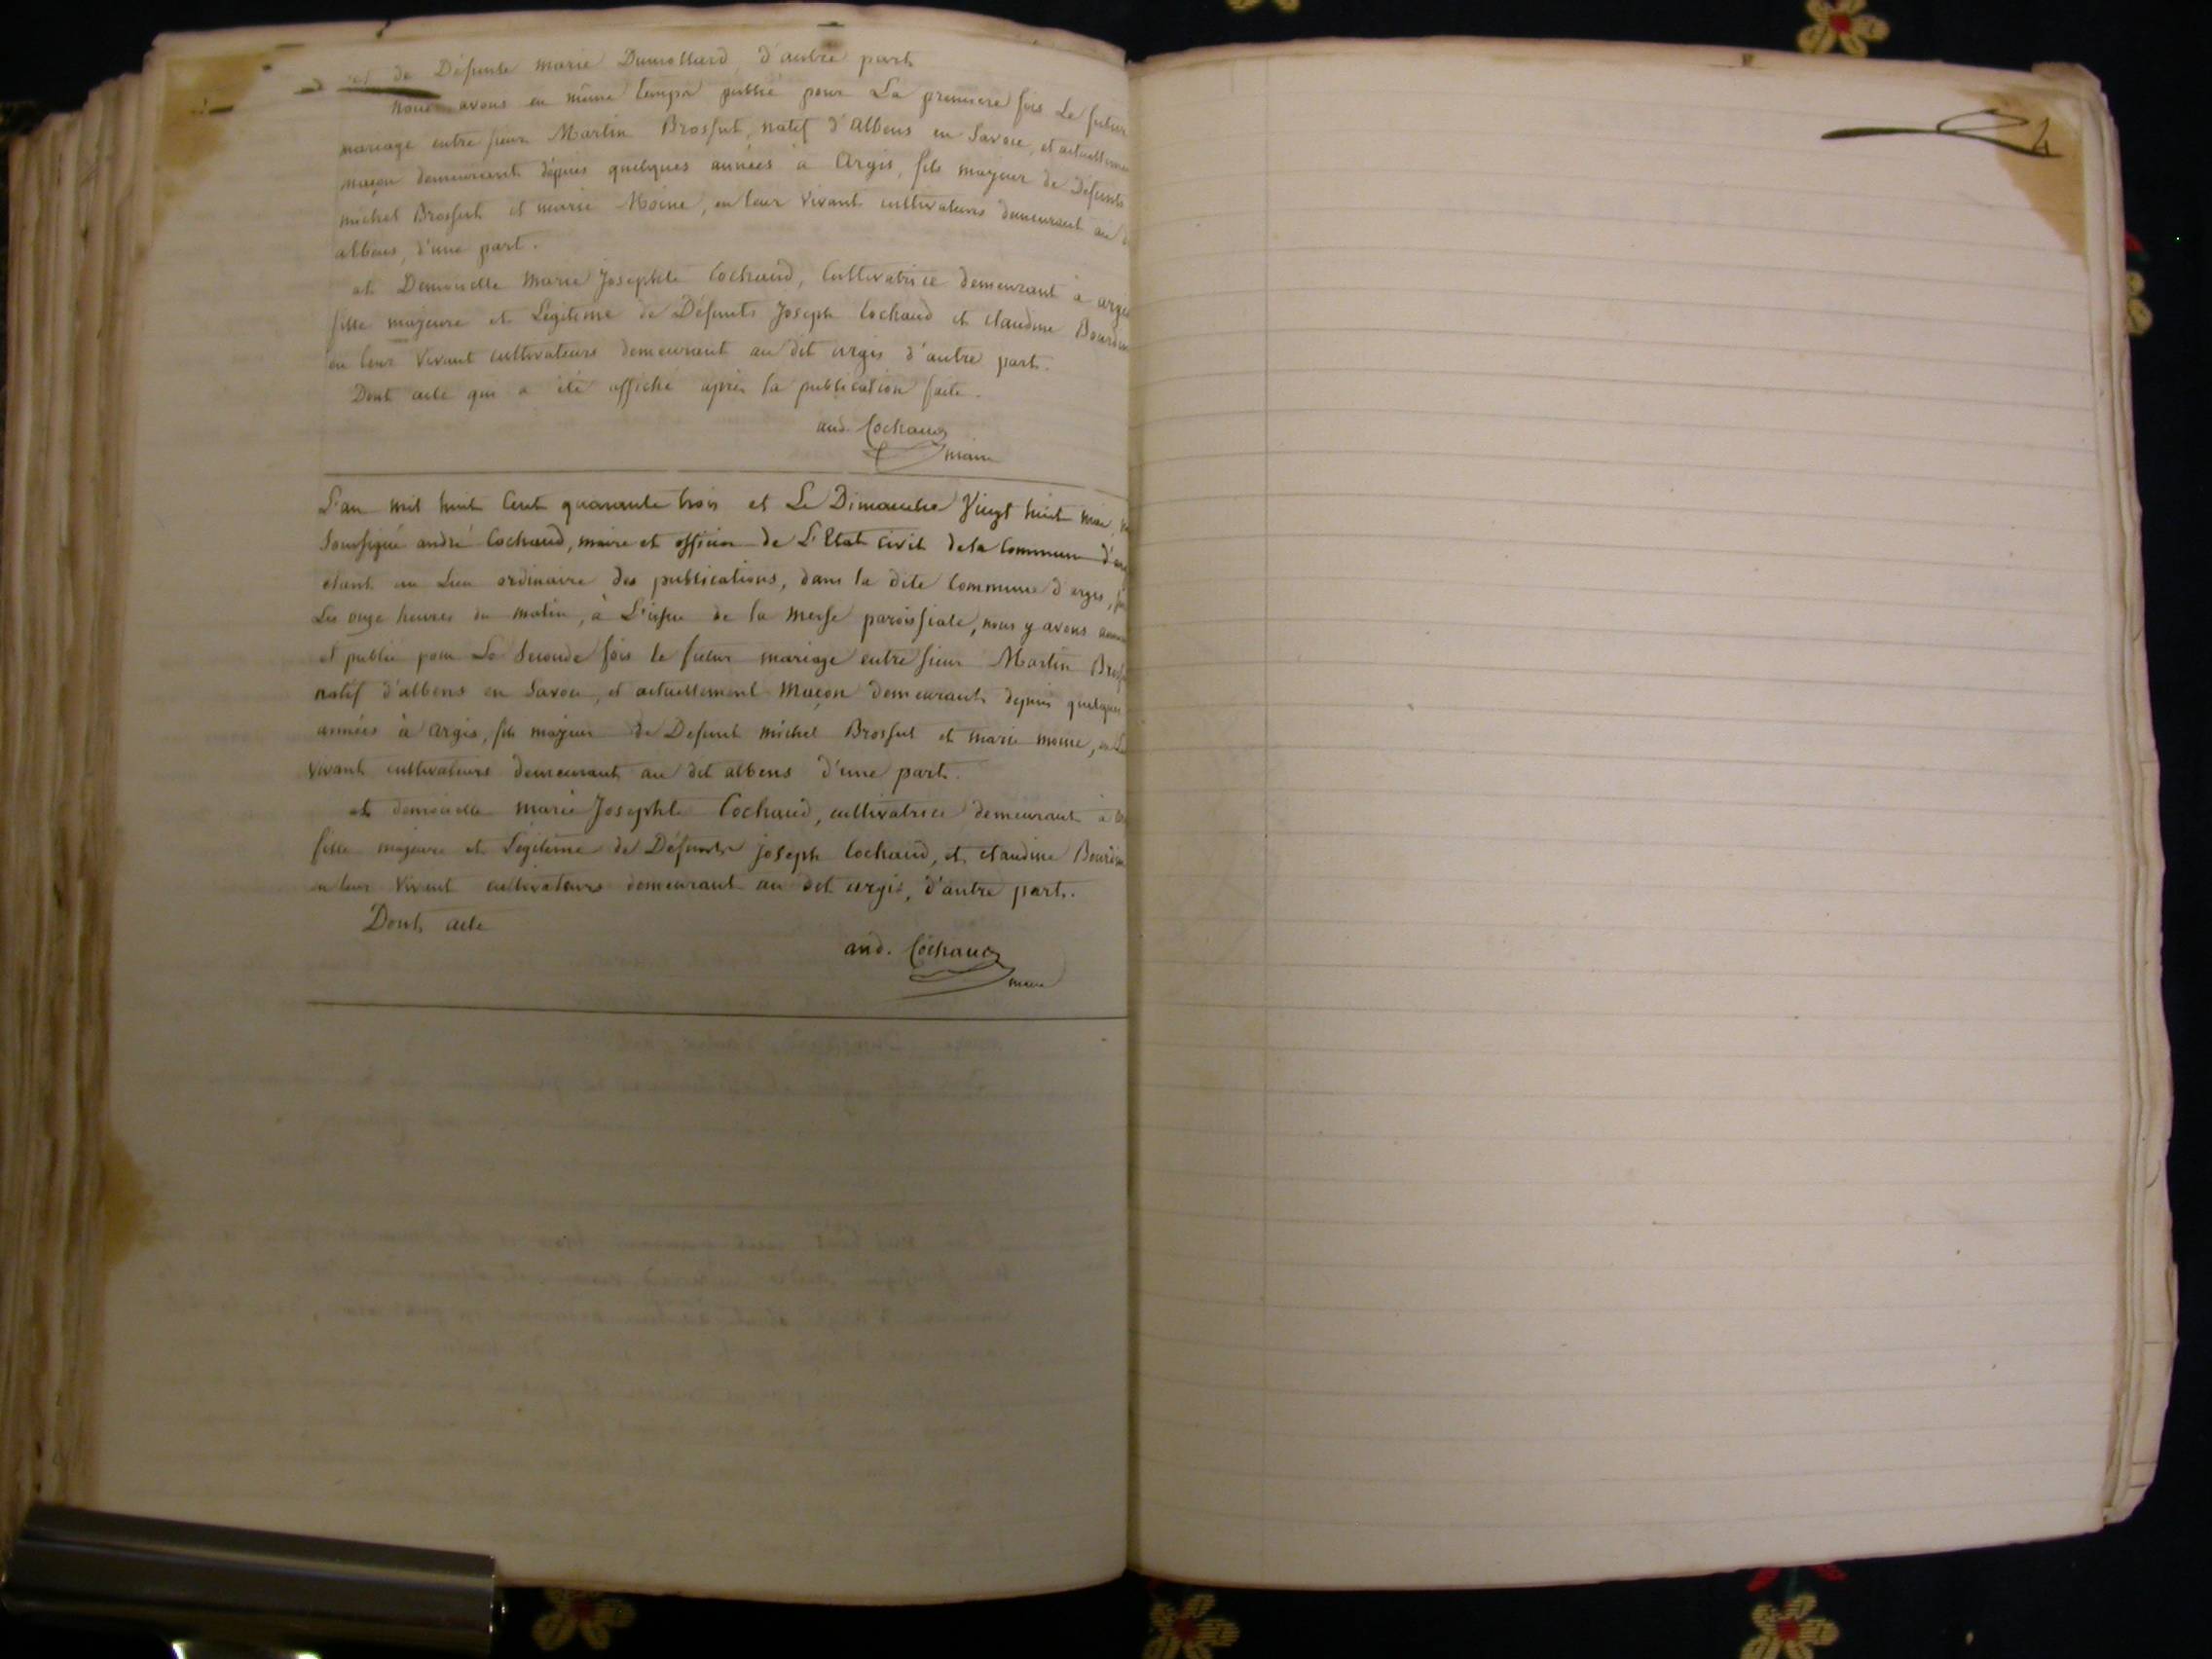 et de Défunte marie Dumollard d'autre part
nous avons en même temps publié pour La premiere fois Le futur
mariage entre sieur Martin Brossut, natif d'Albens en Savoie, et actuellement
maçon demeurant depuis quelques années à Argis, fils majeur de Défunts
michel Brossut et marie Moine, en leur vivant cultivateurs demeurant au
albens, d'une part.
et Demoiselle Marie Josephte Cochaud, Cultivatrice demeurant à argis
fille majeure et Légitime de Défunts Joseph Cochaud et claudine
en leur vivant cultivateurs demeurant au dit argis d'autre part.
Dont acte qui a été affiché après la publication faite.
and. Cochaud
maire
L'an mil huit Cent quarante trois et Le Dimanche Vingt huit mai,
Soussigné andré Cochaud, maire et officier de L'Etat Civil de la Commune
étant au Lieu ordinaire des publications, dans la dite Commune d'argis,
Les onze heures du matin, à L'issue de la messe paroissiale, nous y avons
et publié pour La Seconde fois le futur mariage entre sieur Martin
natif d'albens en Savoie, et actuellement Maçon demeurant depuis quelques
années à Argis, fils majeur de Defunt michel Brossut et marie moine, en
vivant cultivateurs demeurant au dit albens d'une part.
et demoiselle marie Josephte Cochaud, cultivatrice demeurant à
fille majeure et Légitime de Défunts joseph Cochaud, et claudine
en leur vivant cultivateurs demeurant au dit argis, d'autre part.
Dont acte
and. Cochaud
maire